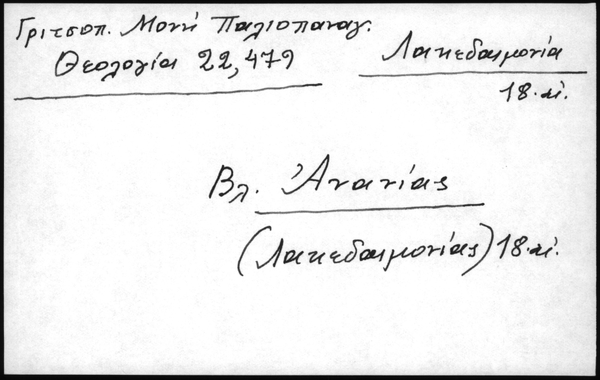 Γριτσοπ. Μονή Παλιοπαναγ.
Θεολογία 22,479
Λακεδαιμονία
18. αἰ.
Βλ. Ἀνανίας
(Λακεδαιμονίας) 18. αἰ.